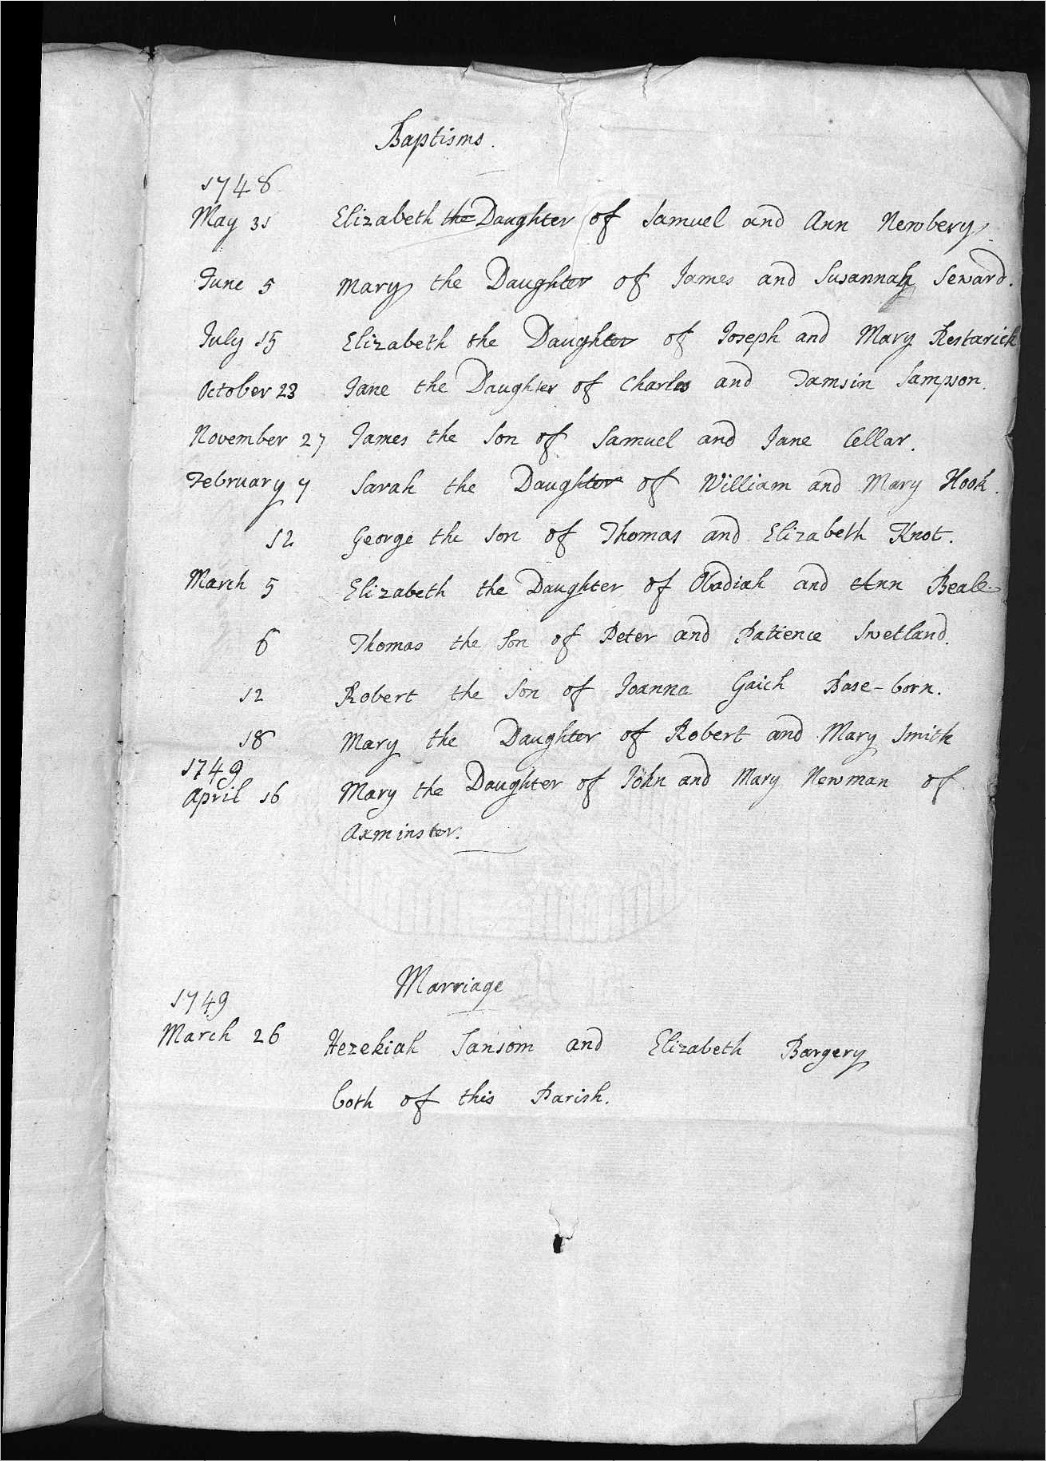 Baptisms.
1748
May 31 Elizabeth the Daughter of Samuel and Ann Newbery.
June 5 Mary the Daughter of James and Susannah Seward.
July 15 Elizabeth the Daughter of Joseph and Mary Restarick
October 23 Jane the Daughter of Charles and Tamsin Sampson.
November 27 James the Son of Samuel and Jane Cellar.
February 7 Sarah the Daughter of William and Mary Hook.
12 George the Son of Thomas and Elizabeth Knot.
March 5 Elizabeth the Daughter of Obadiah and Ann Beale
6 Thomas the Son of Peter and Patience Swetland.
12 Robert the Son of Joanna Gaich Base-born.
18 Mary the Daughter of Robert and Mary Smith
1749
April 16 Mary the Daughter of John and Mary Newman of
Axminster.
Marriage
1749
March 26 Hezekiah Sansom and Elizabeth Bargery
both of this Parish.